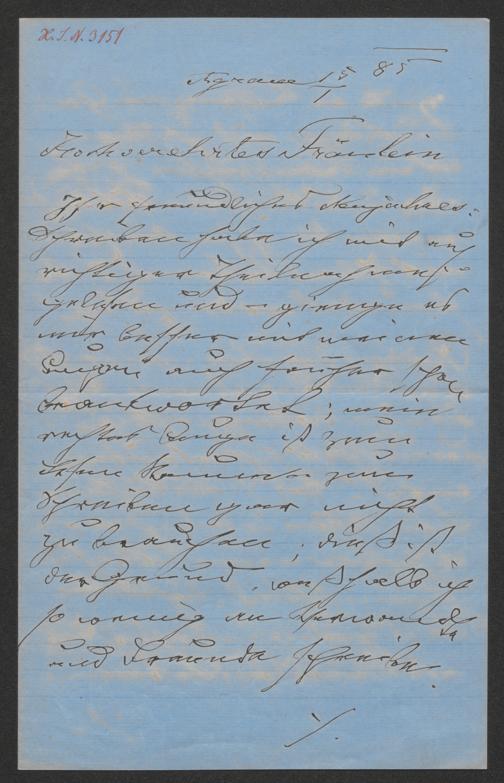 H. I. N. 3151
Agram 15/1 85
Hochverehrtes Fräulein
Ihr freundliches Neujahrs-
Schreiben habe ich mit auf
richtiger Theilnahme
gelesen und – gienge es
mir besser mit meinen
Augen auch früher schon
beantwortet; mein
rechtes Auge ist zum
Lesen kaum – zum
Schreiben gar nicht
zu brauchen; dieß ist
der Grund, weßhalb ich
so wenig an Verwandte
und Freunde schreibe.
./.